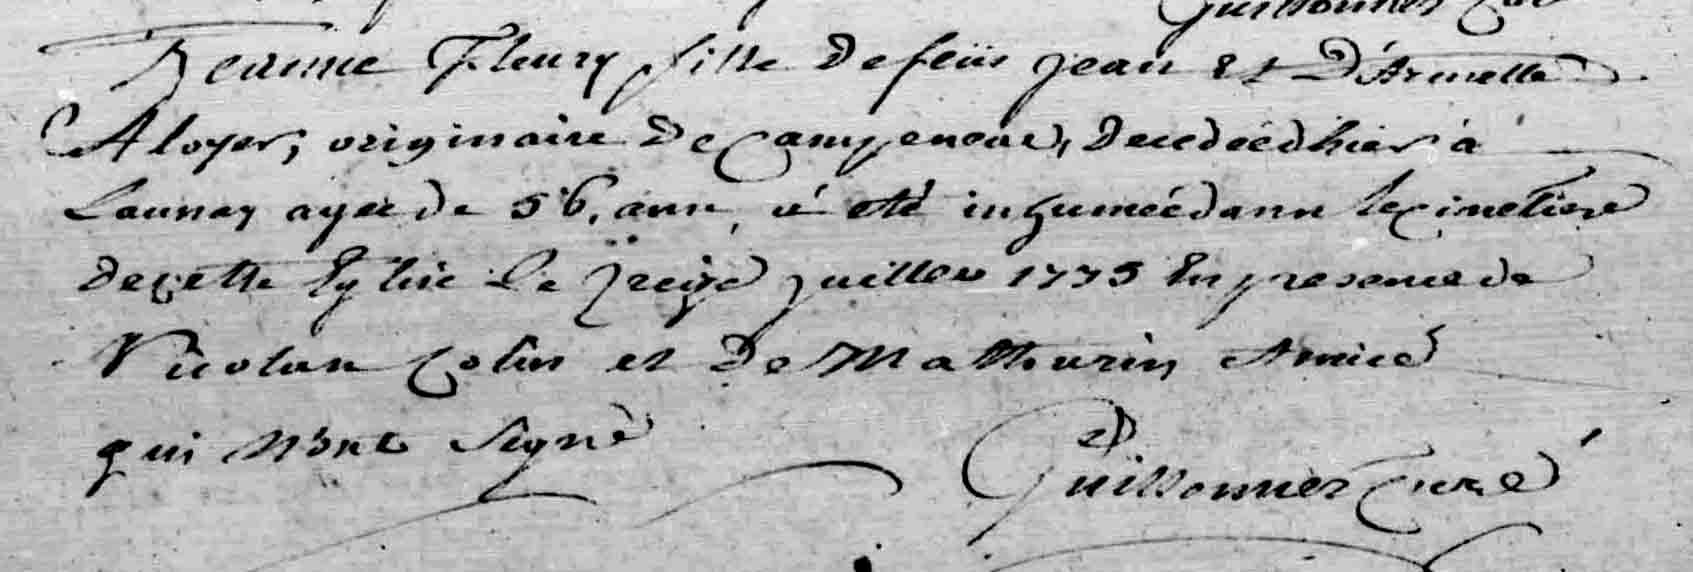 Guillonnier Curé
Jeanne Fleury fille de feüs jean et D'Armelle
Aloyer, originaire de Campeneac, decedeé d'hier à
Launay ageé de 56, ans, à eté inhumeé dans le cimetiere
de cette Eglise le juillet 1775 En presence de
Nicolas Colin et de Mathurin Amice
qui N'ont Signé
Guillonnier Curé